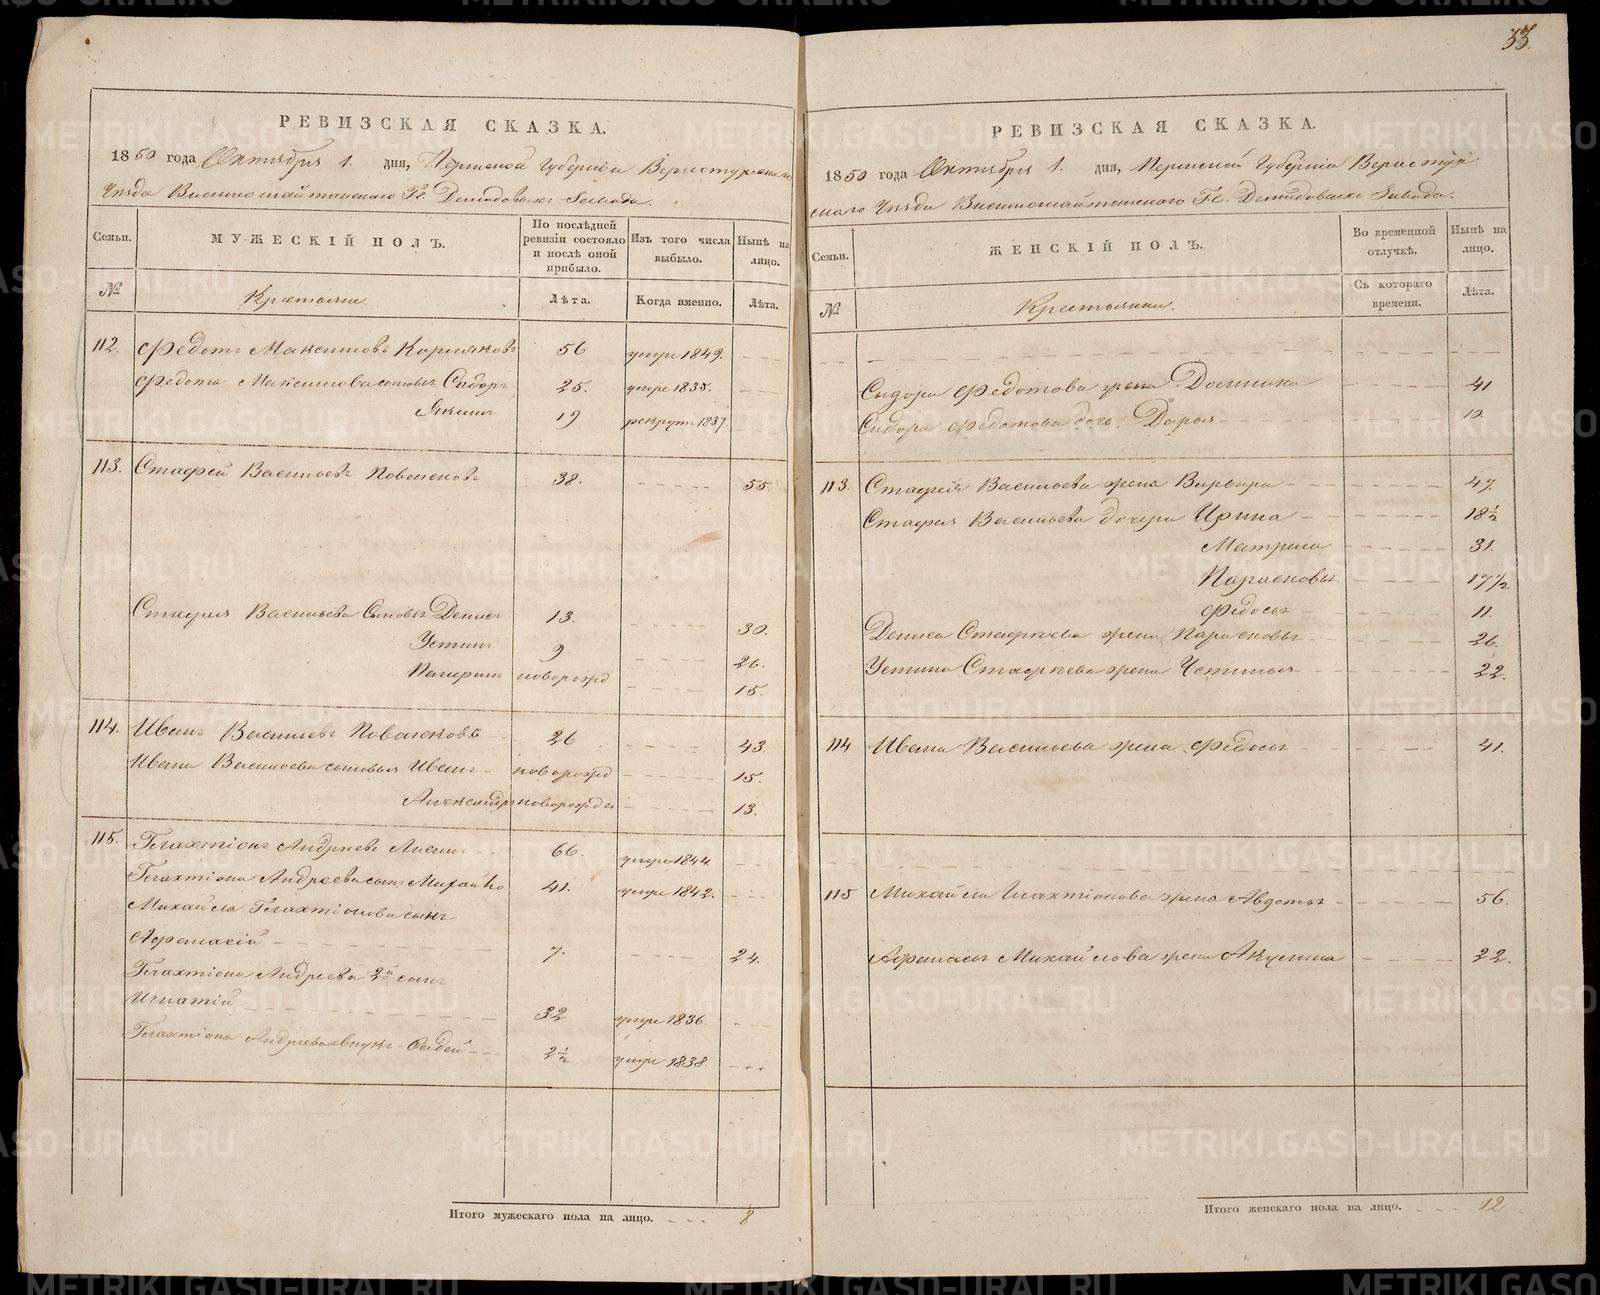 33.
РЕВИЗСКАЯ СКАЗКА.
1850 года Октября 1. дня, Пермской Губерніи Верхотурскаго
Уѣзда Висимошайтанскаго Гг. Демидовыхъ Завода.
Семьи.
МУЖЕСКІЙ ПОЛЪ.
По послѣдней ревизіи состояло и послѣ оной прибыло.
Изъ того числа выбыло.
Нынѣ на лицо.
№
Крестьяне
Лѣта.
Когда именно.
Лѣта.
112. Федотъ Максимовъ Корляковъ 56 умре 1849.
Федота Максимова сыновья Сидоръ 25. умре 1835.
Якимъ 19 рекрутъ 1837.
113. Стафей Васильевъ 38. 55.
Стафея Васильева сыновья Денисъ 13. 30.
Устинъ 9 26.
новорожд 15.
114. Иванъ Васильевъ 26 43.
Ивана Васильева сыновья Иванъ новорожд 15.
Александръ новорожден 13.
115. Галахтіонъ Андреевъ 66. умре 1844.
Галахтіона Андреева сынъ Михайло 41. умре 1842.
Михайла Галахтіонова сынъ
Афанасій 7. 24.
Галахтіона Андреева 2й сынъ
Игнатій 32 умре 1836.
Галахтіона Андреева внукъ 2½ умре 1838.
Итого мужескаго пола на лицо. 8
РЕВИЗСКАЯ СКАЗКА.
1850 года Октября 1. дня, Пермской Губерніи Верхотур
скаго Уѣзда Висимошайтанскаго Гг. Демидовыхъ Завода.
Семьи.
ЖЕНСКІЙ ПОЛЪ.
Во временной отлучкѣ.
Нынѣ на лицо.
№
Крестьянки.
Съ котораго времени.
Лѣта.
Сидора Федотова жена Домника 41
Сидора Федотова дочь Дарья 10.
113. Стафея Васильева жена Варвара 47.
Стафея Васильева дочери Ирина 18½
Матрена 31.
Парасковья 17½
Федосья 11.
Дениса Стафеева жена Парасковья 26.
Устина Стафеева жена Устинья 22.
114 Ивана Васильева жена Федосья 41.
115 Михайла Галахтіонова жена Авдотья 56.
Афанасья Михайлова жена Акулина 22.
Итого женскаго пола на лицо. 12
METRIKI.GASO-URAL.RU